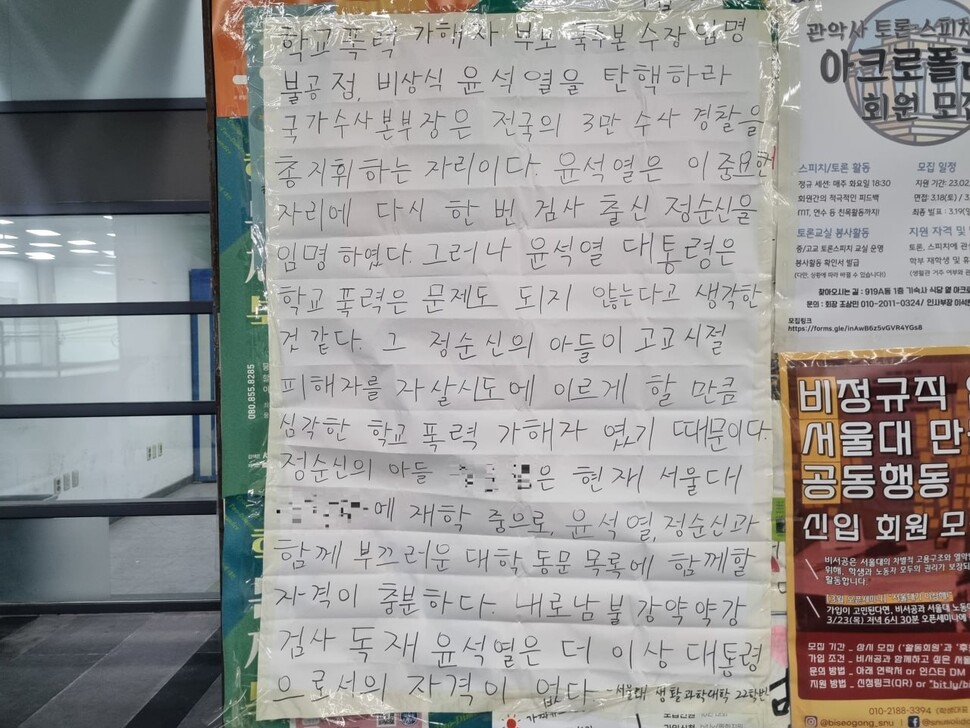 학교폭력 가해자 부모 국수본 수장 임명
불공정, 비상식 윤석열을 탄핵하라
국가수사본부장은 전국의 3만 수사 경찰을
총지휘하는 자리이다. 윤석열은 이 중요한
자리에 다시 한 번 검사 출신 정순신을
임명 하였다. 그러나 윤석열 대통령은
학교 폭력은 문제도 되지 않는다고 생각한
것 같다. 그 정순신의 아들이 고교시절
피해자를 자살시도에 이르게 할 만큼
심각한 학교 폭력 가해자 였기 때문이다.
정순신의 아들 은 현재 서울대
에 재학 중으로, 윤석열, 정순신과
함께 부끄러운 대학 동문 목록에 함께할
자격이 충분하다. 내로남불 강약약강
검사 독재 윤석열은 더 이상 대통령
으로서의 자격이 없다 -서울대 생활과학대학 22학번
080.855.8285
관악사 토론·스피치
아크로폴리
회원 모
스피치/토론 활동
정규 세션: 매주 화요일 18:30
회원간의 적극적인 피드백
MT, 연수 등 친목활동까지!
토론교실 봉사활동
중/고교 토론스피치 교실 운영
봉사활동 확인서 발급
(다만, 상황에 따라 바뀔 수 있습니다!)
모집 일정
지원 기간: 23.02
면접: 3.18(토) / 3
최종 발표: 3.19(
지원 자격 및
토론, 스피치에 관
학부 재학생 및 휴
(생활관 거주 여부와 관
찾아오시는 길 : 919A동 1층 기숙사 식당 옆 아크로
문의 : 회장 조상민 010-2011-0324/ 인사부장 이석
모집링크
https://forms.gle/inAwB6z5vGVR4YGs8
비정규직
서울대 만
공동행동
신입 회원 모
비서공은 서울대의 차별적 고용구조와 열악
위해, 학생과 노동자 모두의 권리가 보장되
활동합니다.
가입이 고민된다면, 비서공과 서울대 노동
3/23(목) 저녁 6시 30분 오픈세미나에
모집 기간 _ 상시 모집 ('활동회원'과 '후
가입 조건 _ 비서공과 함께하고 싶은 서울
문의 방법 _ 아래 연락처 or 인스타 DM
지원 방법 _ 신청링크(QR) or "bit.ly/bi
010-2188-3394 (학생대표
@biseogong_snu
@snu